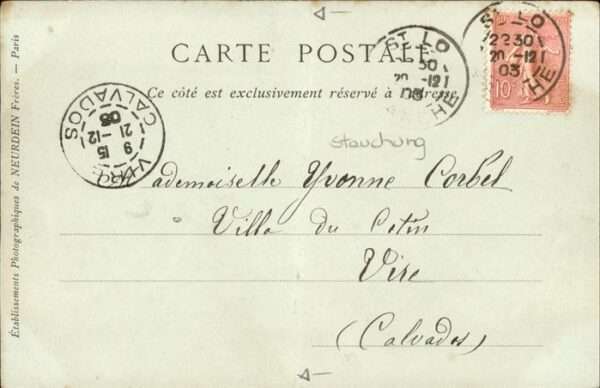 CARTE POSTALE
Ce côté est exclusivement réservé à l'adresse
ST LO
30
20 -12
03
CHE
ST LO
22 30
20 -12
03
CHE
10
VIRE
9 15
21 -12
03
CALVADOS
Stauchung
Mademoiselle Yvonne Corbel
Villa du Cotin
Vire
(Calvados)
Établissements Photographiques de NEURDEIN Frères. — Paris